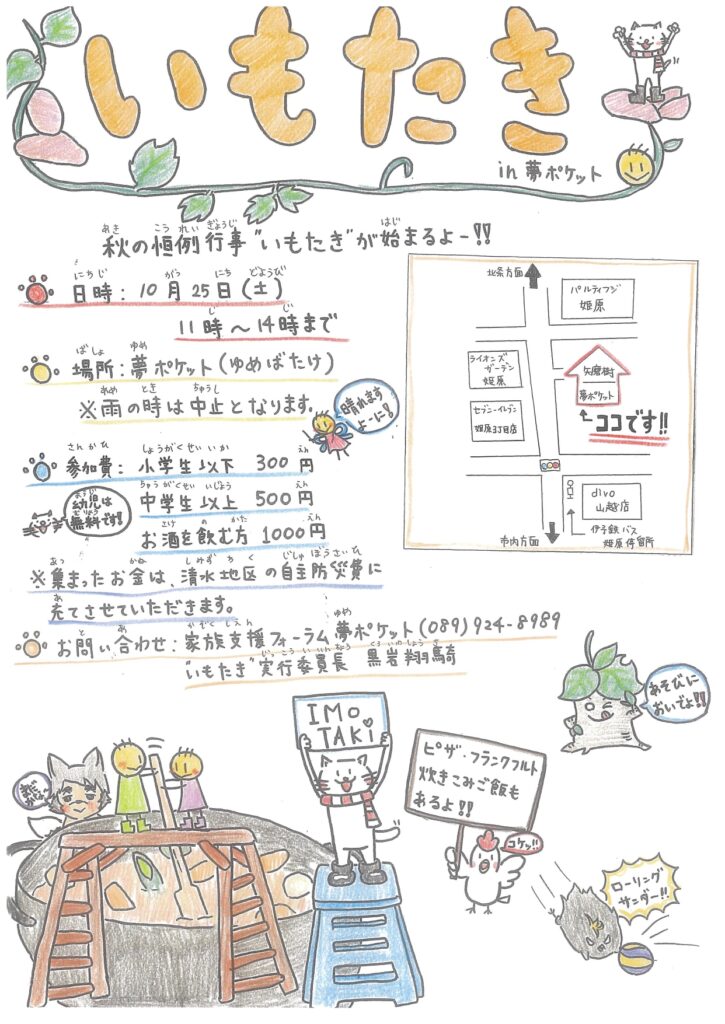 いもたき
in 夢ポケット
秋の恒例行事"いもたき"が始まるよー!!
日時：10月25日(土)
11時～14時まで
場所：夢ポケット(ゆめばたけ)
※雨の時は中止となります。
晴れます
よーに!
参加費：小学生以下 300円
幼児は
無料です!
中学生以上 500円
お酒を飲む方 1000円
※集まったお金は、清水地区の自主防災費に
充てさせていただきます。
お問い合わせ：家族支援フォーラム 夢ポケット(089)924-8989
"いもたき"実行委員長 黒岩翔騎
北条方面
パルティフジ
姫原
ライオンズ
ガーデン
姫原
矢磨樹
夢ポケット
ココです!!
セブン-イレブン
姫原3丁目店
divo
山越店
市内方面
伊予鉄バス
姫原停留所
あそびに
おいでよ!!
IMO
TAKi
ピザ・フランクフルト
炊きこみご飯も
あるよ!!
コケッ!!
ローリング
サンダー!!